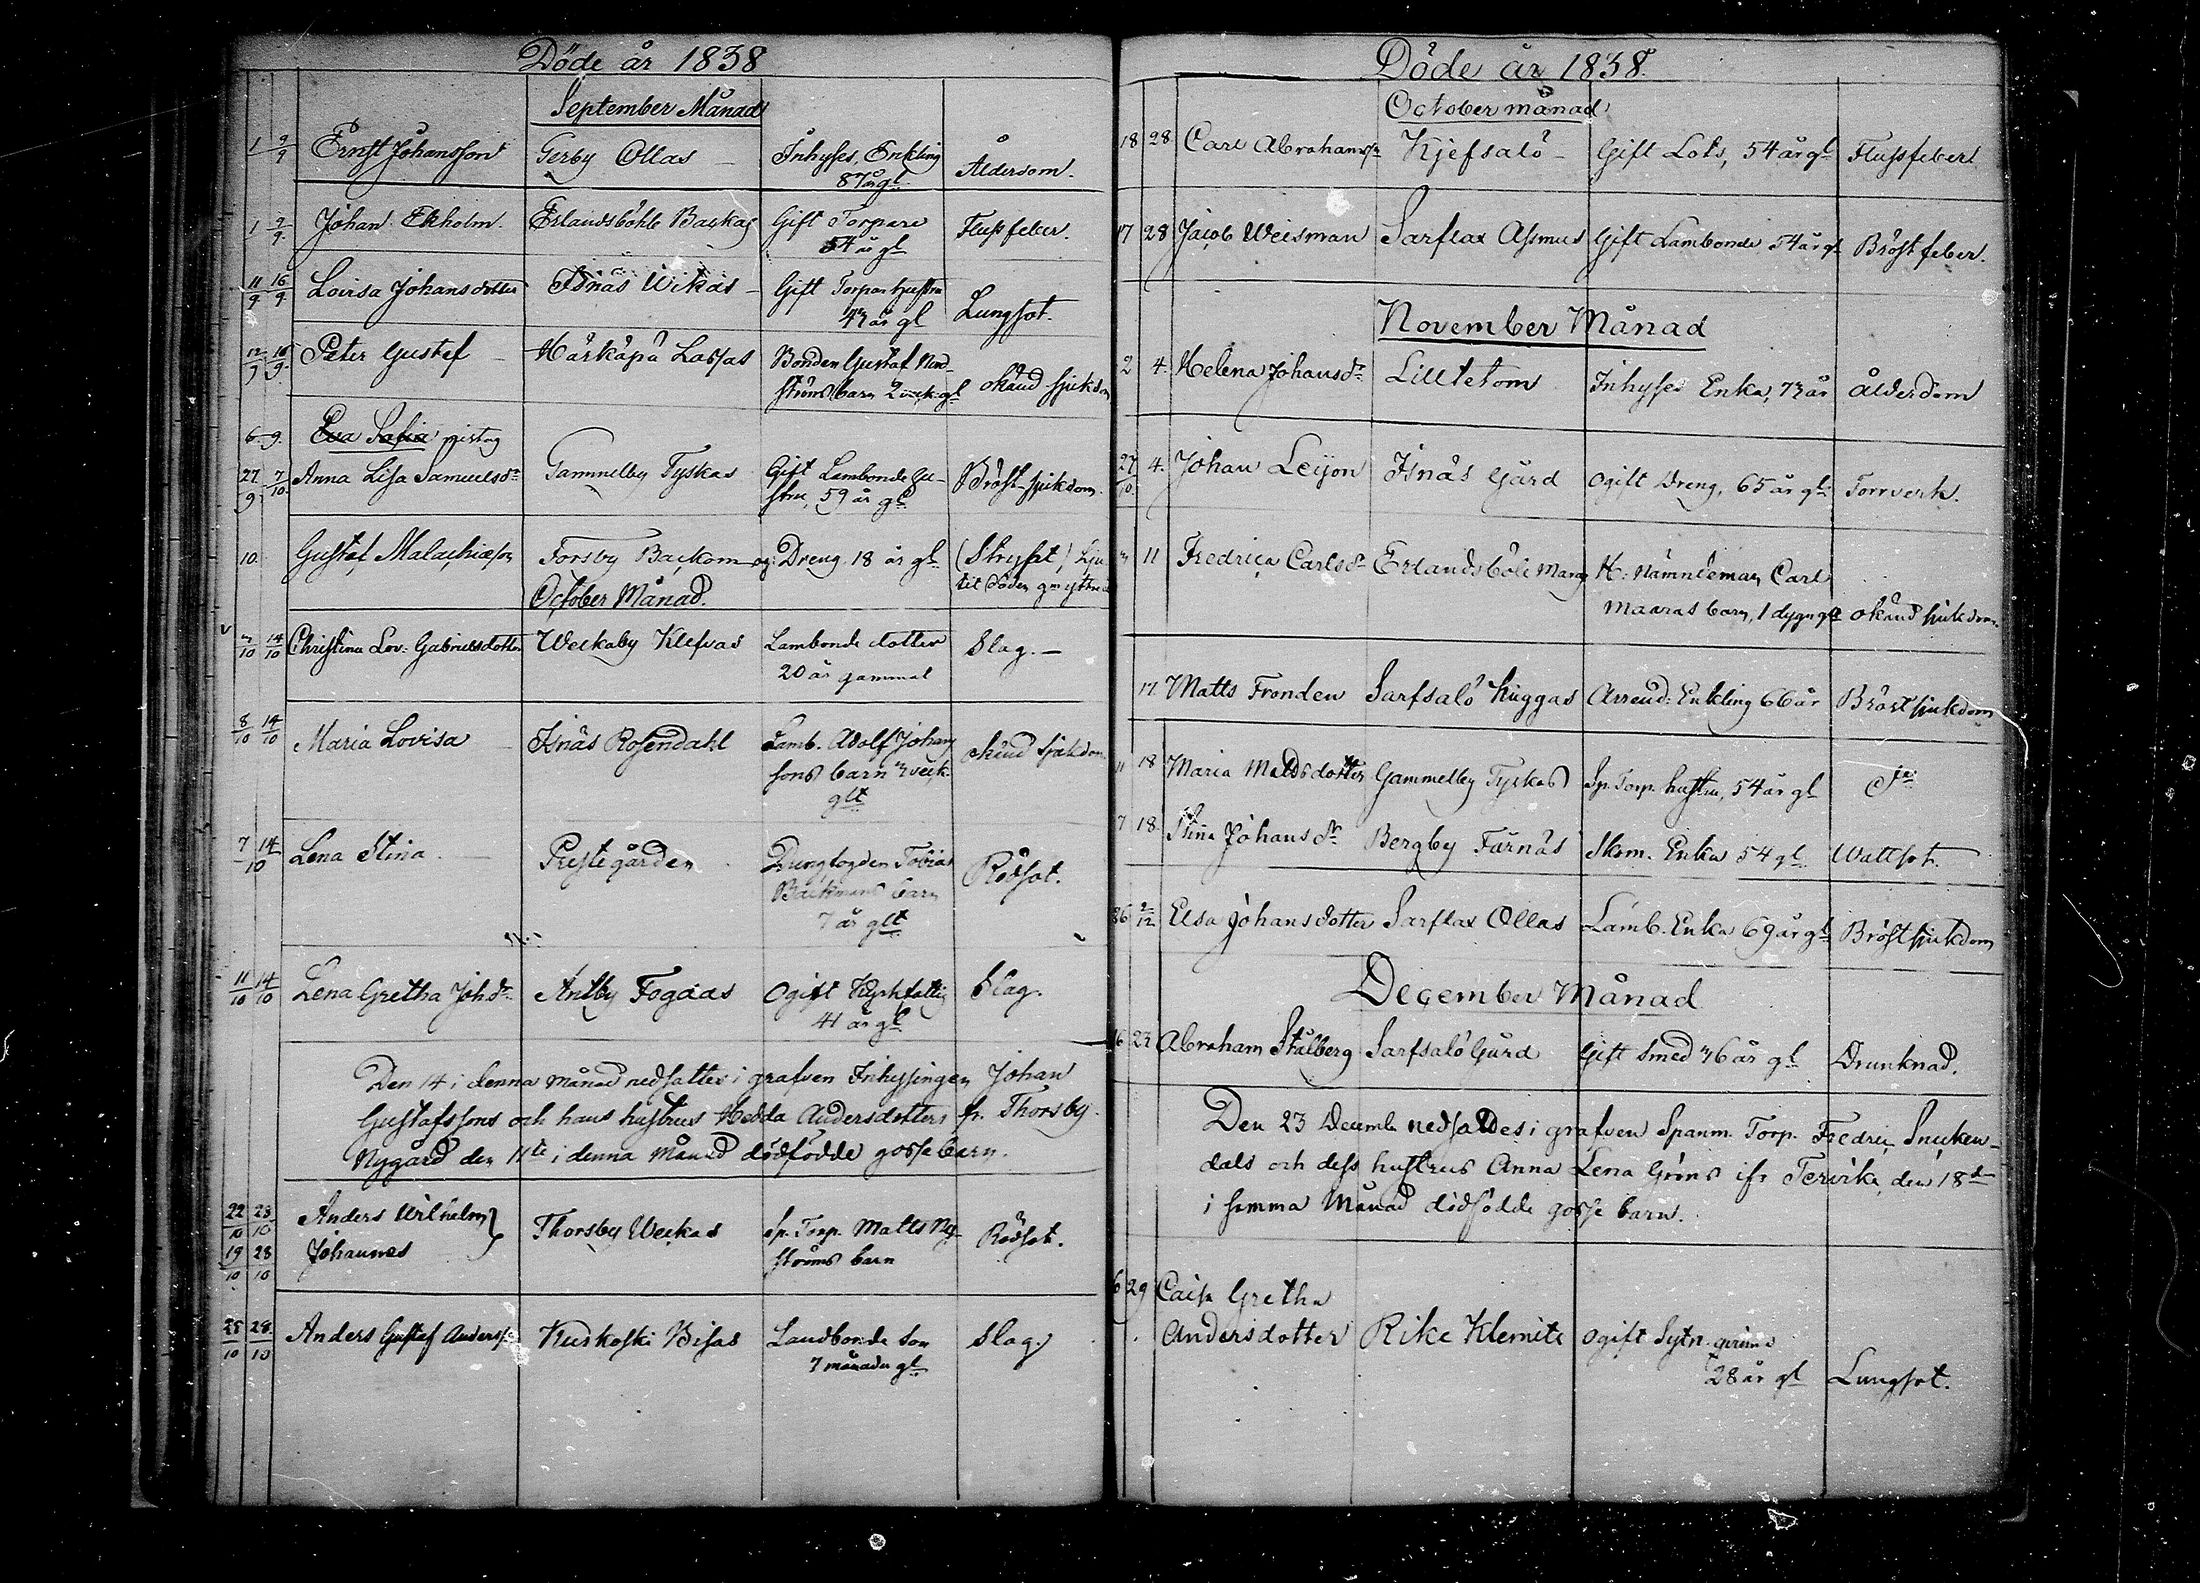 Döde år 1838
September Månad
1 9/9 Ernst Johansson Gerby Ollas Inhyses, Enkling Ålderdom.
87 år gl
1 9/9. Johan Ekholm. Erlandsböhle Backas Gift Torpare Flussfeber.
54 år gl
11/9 16/9. Lovisa Johansdotter Isnäs Wikas Gift Torpar hustru Lungsot.
47 år gl
12/9 16/9. Peter Gustef Härkäpä Lassas Bonden Gustaf Nord-
ströms barn 2 veck. gl okänd sjukdom
6 9. Eva Safia
27/9 7/10 Anna Lisa Samuelsdr Gammelby Tyskas Gift Lambonde hu- Bröst sjukdom.
stru, 59 år gl
10. Gustaf Malachiæson Forsby Backom og: Dreng 18 år gl
October Månad.
3/10 14/10 Christina Lov: Gabrielsdotter Weckaby Klefvas Lambonde dotter Slag.
20 år gammal
8/10 14/10 Maria Lovisa Isnäs Rosendahl Lamb. Adolf Johans okänd sjukdom
sons barn 3 veck.
glt
7 14/10 Lena Stina. Prestegården Drengfogden Tobias Rödsot.
Backmans barn
7 år glt
11/10 14/10 Lena Gretha Johdr Antby Fogdas Ogift Kyrkfattig Slag.
41 år gl
Den 14 i denna månad nedsattes i grafven Inhysingen Johan
Gustafssons och hans hustrus Hedda Andersdotters fr. Thorsby
Nygård den 11te i denna Månad dödfödde gossebarn.
22/10 28/10 Anders Wilhelm
19/10 28/10 Johannes } Thorsby Weckas Sp. Torp. Matts Ny- Rödsot.
ströms barn
25/10 28/10 Anders Gustaf Anderss: Kuskoski Bisas Landbonde Son Slag.
7 månader gl
Döde år 1838.
October månad
18 28 Carl Abrahamss: Kjefsalö Gift Lots, 54 år gl Flussfeber
17 28 Jacob Weisman Sarflax Assmus Gift Lambonde 54 år gl Bröst feber.
November Månad
2 4. Helena Johansdr Lilltetom Inhyses Enka, 73 år Ålderdom
27/10 4. Johan Leijon Isnäs Gård ogift Dreng, 65 år gl Torrverk.
3 11 Fredrica Carlsdr Erlandsböle Marg H: Nämndeman Carl
Maaras barn, 1 dygn gl okänd sjukdom
17 Matts Fronden Sarfsalö Kuggas Arrend: Enkling 66 år Bröst sjukdom
11 18 Maria Mattsdotter Gammelby Tyskas Sp. Torp. hustru, 54 år gl
7 18. Stina Johansdr Bergby Färnäs Skom. Enka 54 gl Wattsot.
26 2/12 Elsa Johansdotter Sarflax Ollas Lamb. Enka 69 år gl Bröst sjukdom
December Månad
16 23 Abraham Stålberg Sarfsalö Gård Gift Smed 36 år gl Drunknad.
Den 23 Decemb. nedsattes i grafven Spanm. Torp. Fredric Snicken-
dals och dess hustrus Anna Lena Gröns ifr Tervik, den 18de
i samma Månad dödfödde gosse barn.
6 29 Caisa Gretha
Andersdotter Rike Klemits ogift Sytn. qvinna
28 år gl Lungsot.